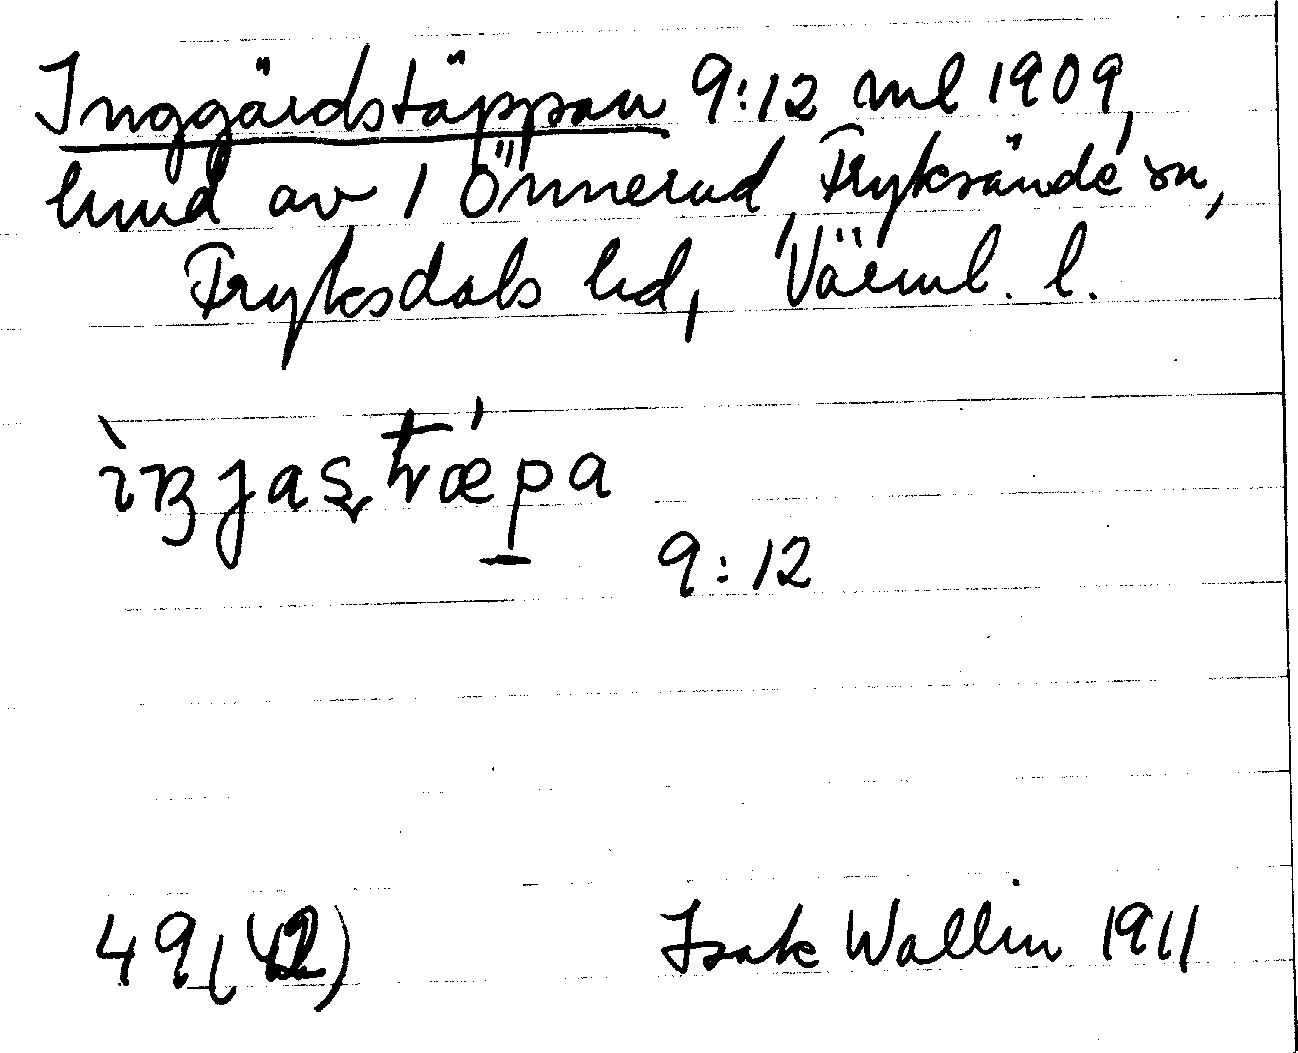 Inggärdstäppan 9:12 ml 1909,
hmd av 1 Önnerud, Fryksände sn,
Fryksdals hd, Värml. l.
9:12
49 (42)
Isak Wallin 1911